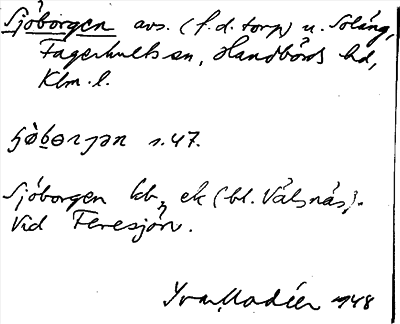 Sjöborgen avs. (f.d. torp) u. Solång,
Fagerhults sn, Handbörds hd,
Klm. l.
s. 47.
Sjöborgen kb, ek (bl. Välsnäs).
Vid Feresjön.
Yvar Modéer 1948